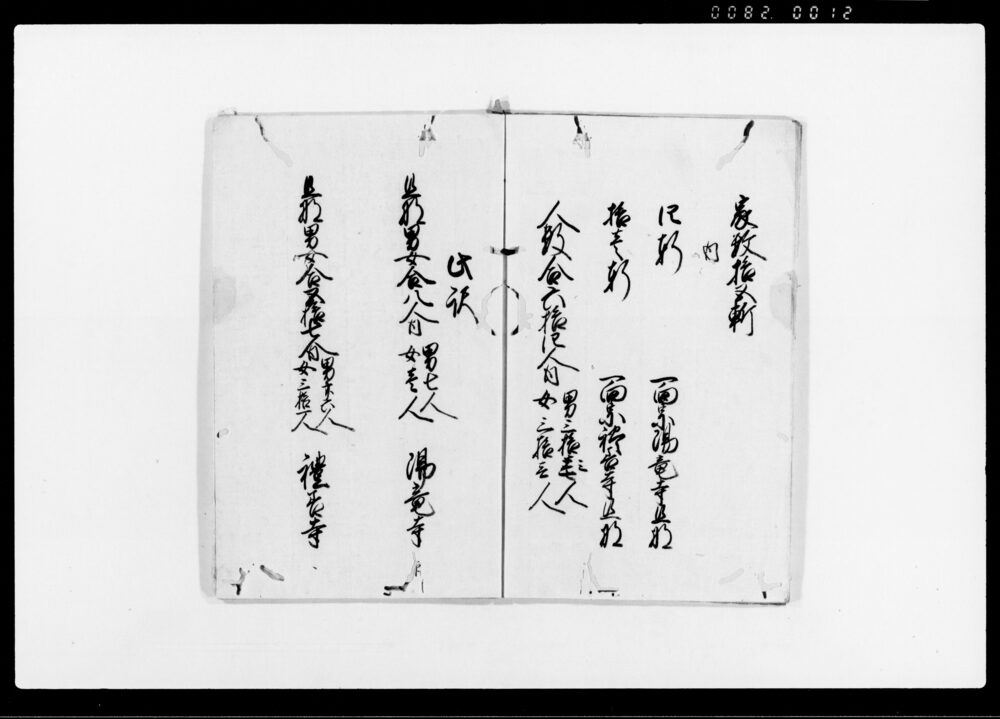 0082. 0012
家数拾五軒
内
四軒 一向宗陽竜寺旦那
拾壱軒 一向宗禮寺旦那
人数合六拾四人内 男三拾三人
女三拾壱人
此訳
旦那男女合八人内 男七人
女壱人 陽竜寺
旦那男女合五拾七人内 男廿六人
女三拾一人 禮寺